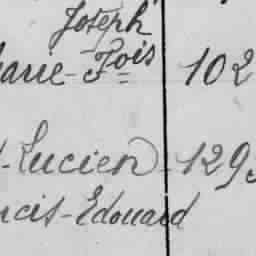 Joseph
arie-Fois 102
-Lucien 129
ncis-Edouard